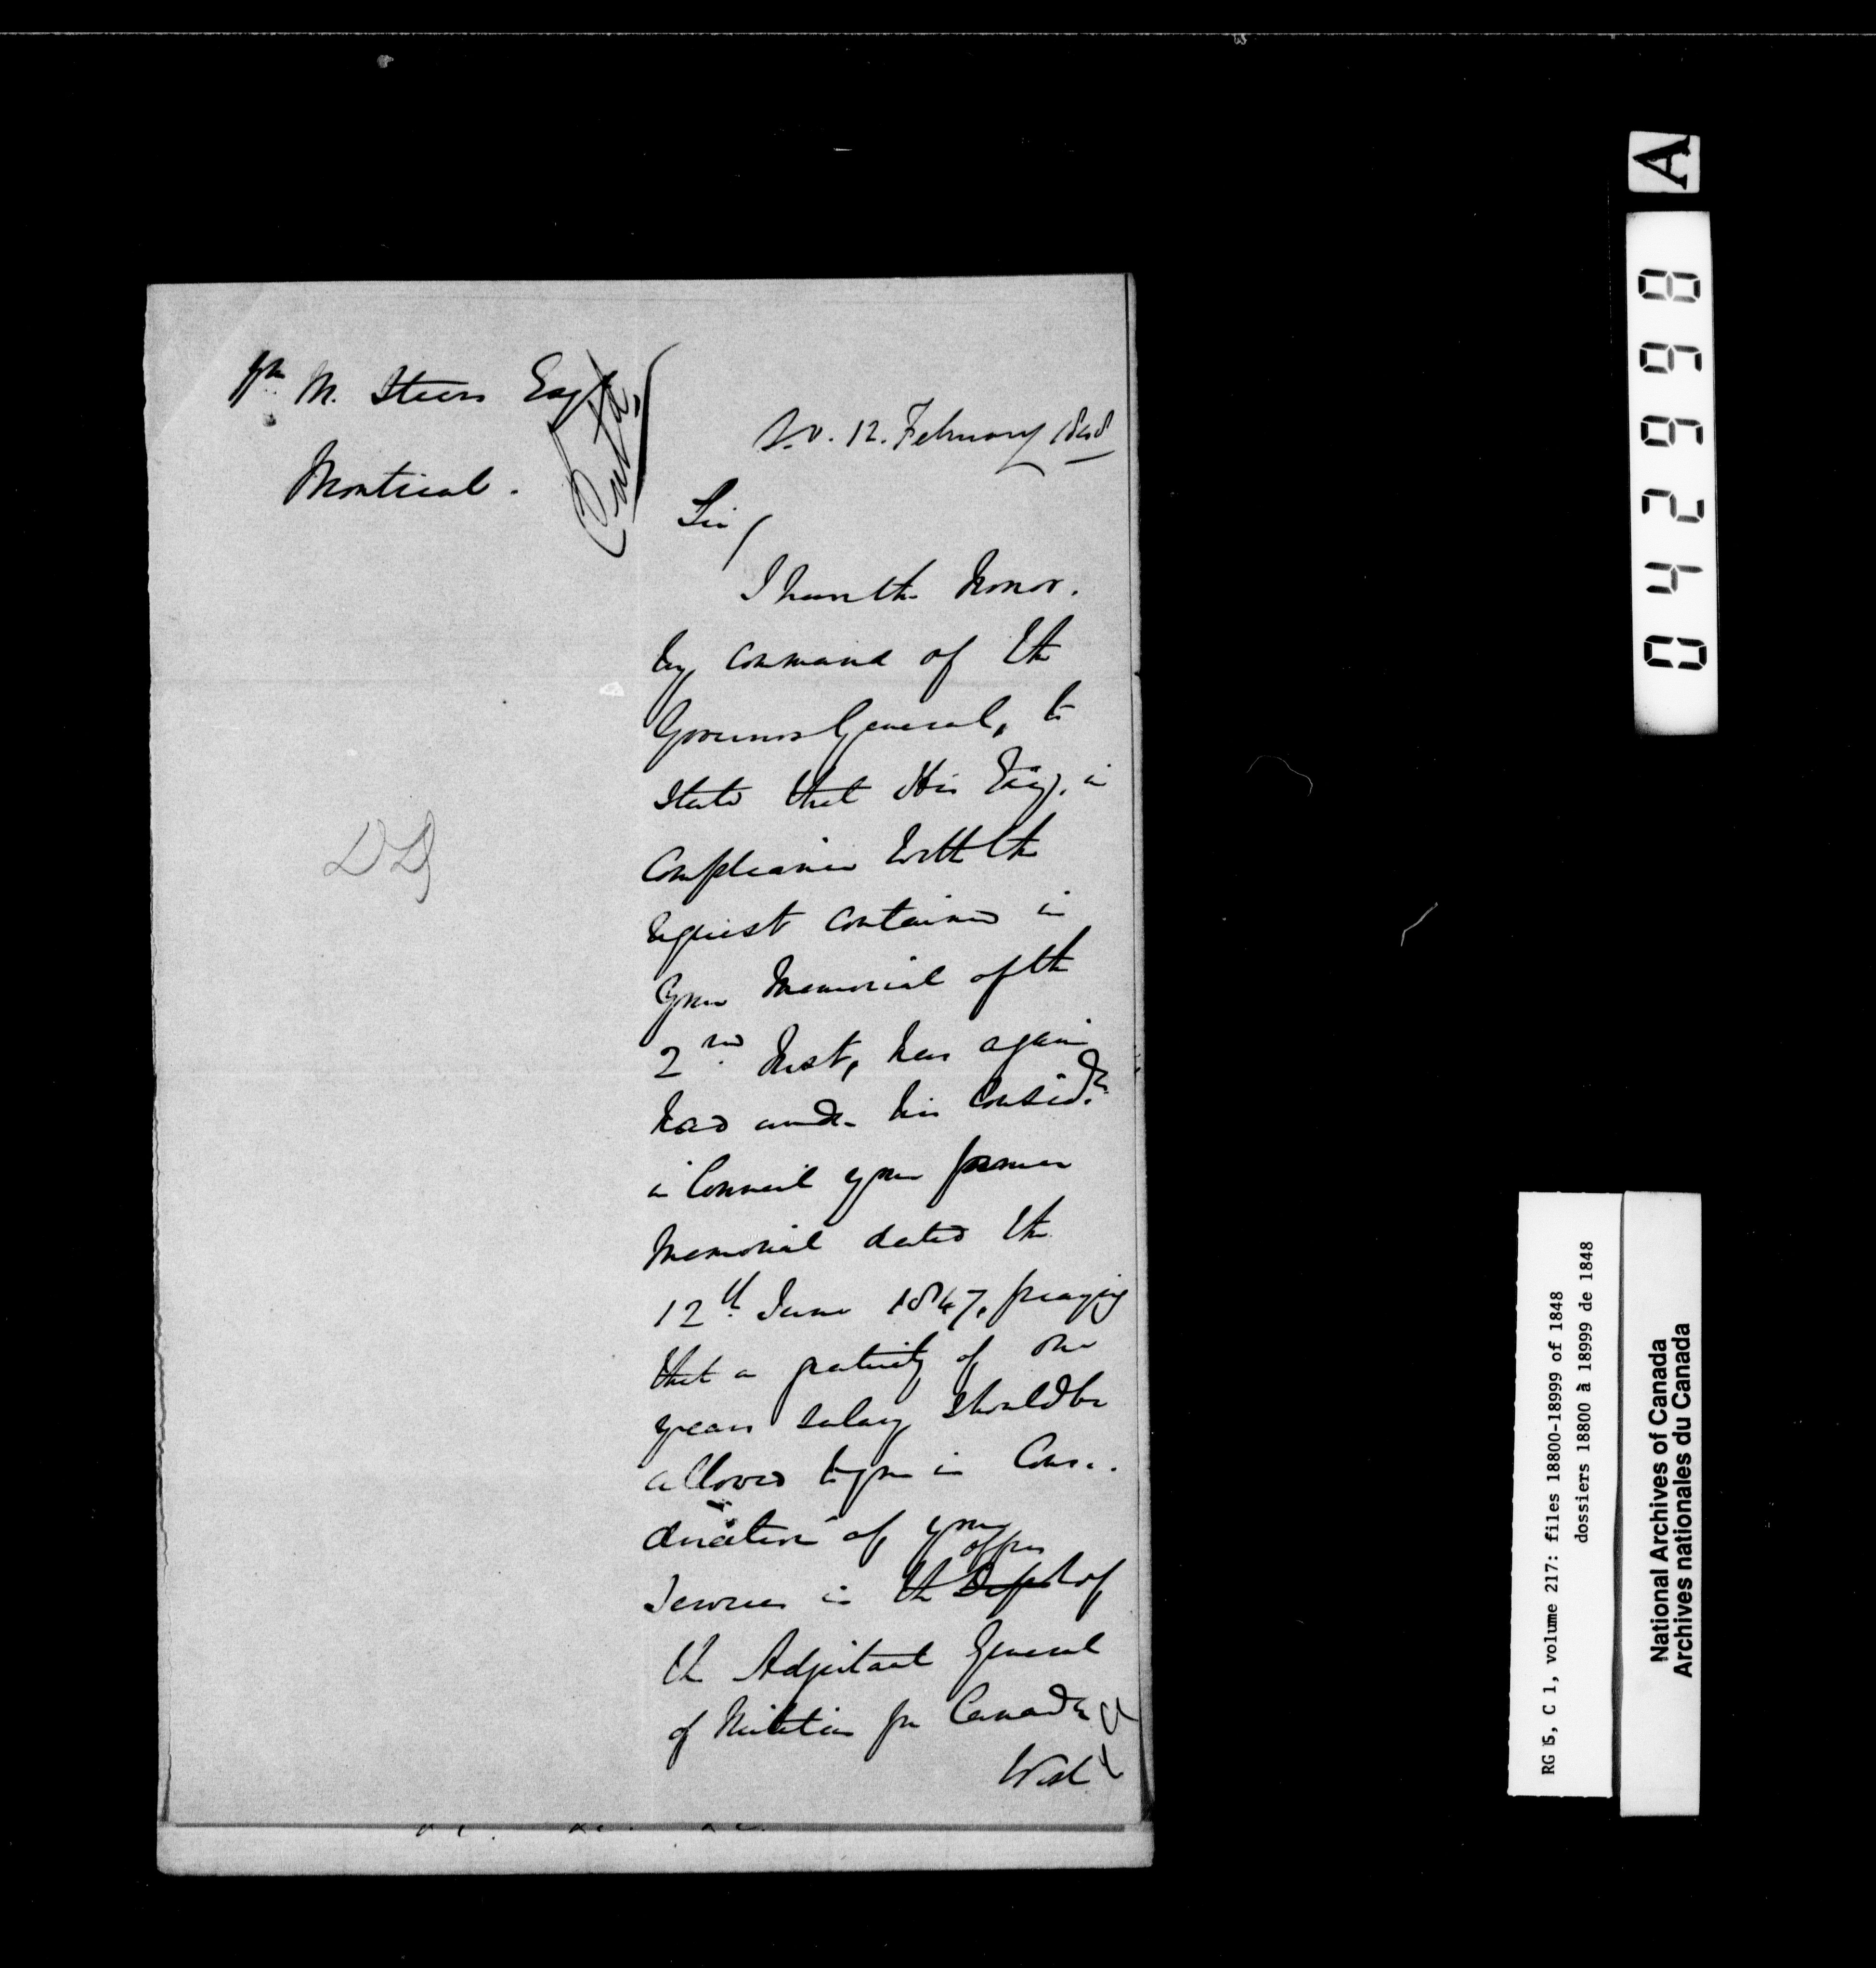 Wm M. Steers Esqr
Montreal.
Entd.
S.O. 12. February 1848
Sir/
I have the honor.
by command of the
Governor General, to
state that His Exy. in
compliance with the
request contained in
your Memorial of the
2nd Inst, has again
had under his Considn
in Council your former
Memorial dated the
12th June 1847, praying
that a gratuity of one
years salary should be
allowed to you in Consi.
deration of your
services in the Dept of
office
the Adjutant General
of Militia for Canada
West
DD
A
0426968
RG 5, C 1, volume 217: files 18800-18999 of 1848
dossiers 18800 à 18999 de 1848
National Archives of Canada
Archives nationales du Canada